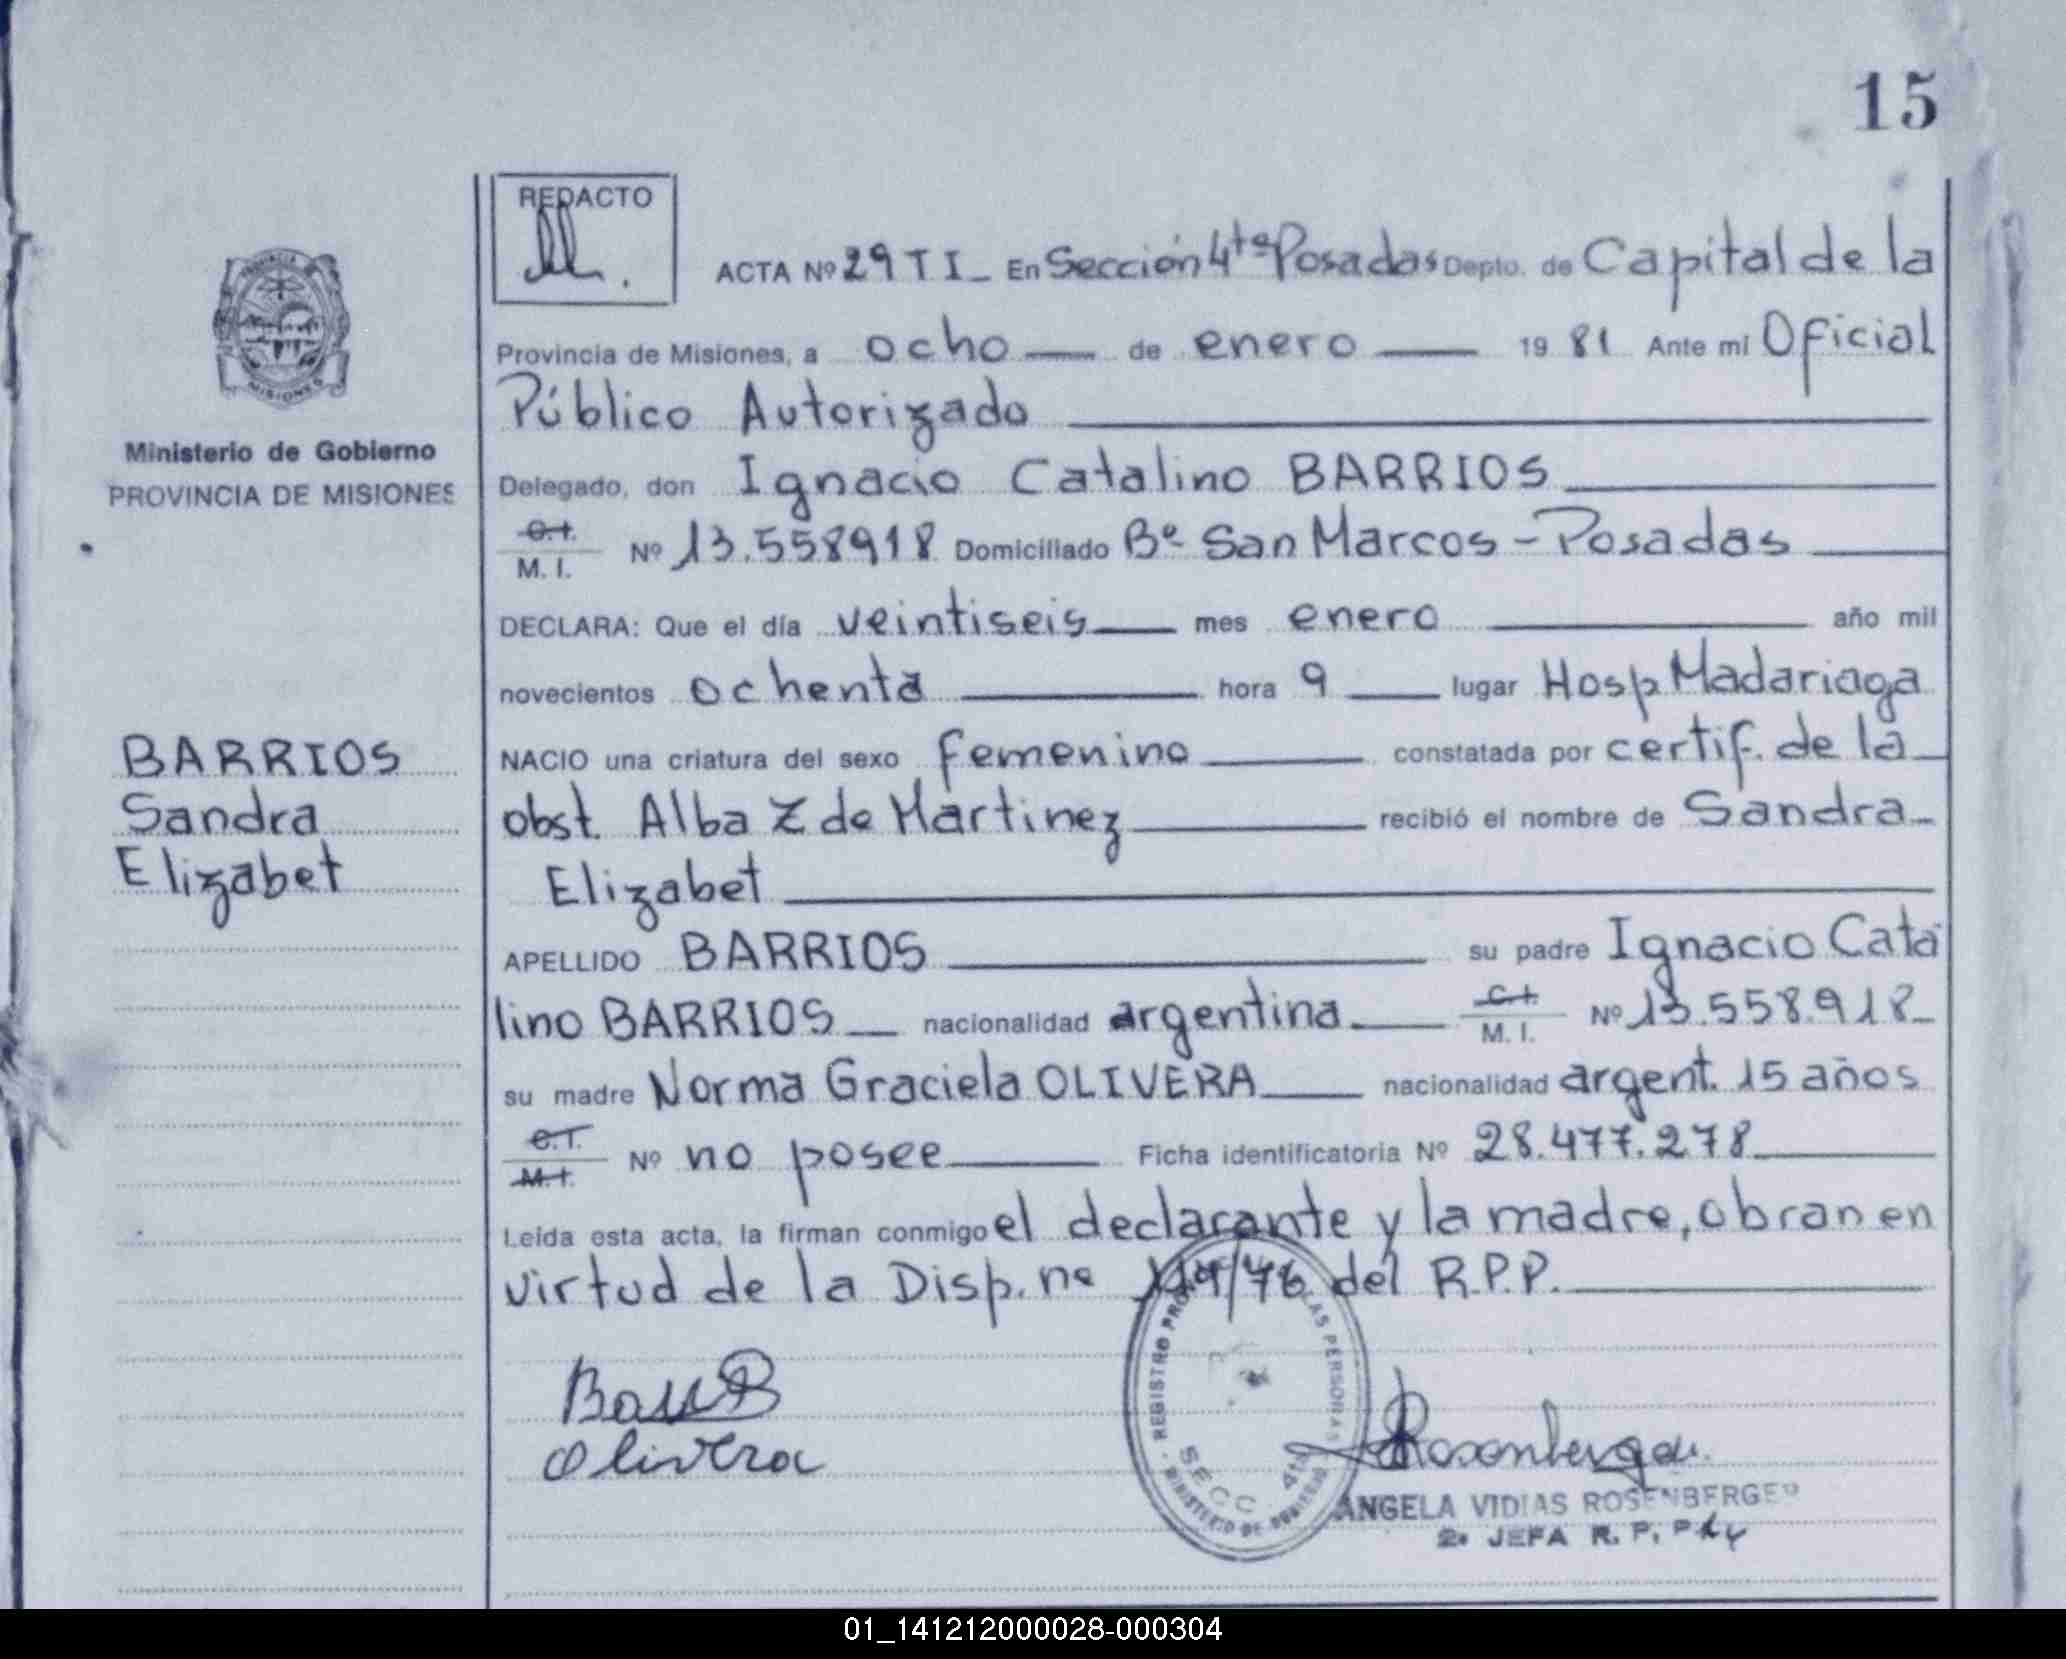 15
REDACTO
ACTA Nº 29 T I_ En Sección 4ta Posadas Depto. de Capital de la
Provincia de Misiones, a ocho de enero 19 81 Ante mi Oficial
Público Autorizado
Delegado, don Ignacio Catalino BARRIOS
C.I.
M. I. Nº 13.558918 Domiciliado Bº San Marcos - Posadas
DECLARA: Que el día veintiseis mes enero año mil
novecientos ochenta hora 9 lugar Hosp Madariaga
NACIO una criatura del sexo femenino constatada por certif. de la
obst. Alba Z de Martinez recibió el nombre de Sandra
Elizabet
APELLIDO BARRIOS su padre Ignacio Cata
lino BARRIOS nacionalidad argentina C.I.
M. I. Nº 13.558.918
su madre Norma Graciela OLIVERA nacionalidad argent. 15 años
C.I.
M.I. Nº no posee Ficha identificatoria Nº 28.477.278
Leida esta acta, la firman conmigo el declarante y la madre, obran en
virtud de la Disp. nº /76 del R.P.P.
Olivera
Rosenberger
ANGELA VIDIAS ROSENBERGER
2º JEFA R. P. P
REGISTRO LAS PERSONAS
SECC. 4ta
MINISTERIO DE GOBIERNO
PROVINCIA DE
MISIONES
Ministerio de Gobierno
PROVINCIA DE MISIONES
BARRIOS
Sandra
Elizabet
01_141212000028-000304